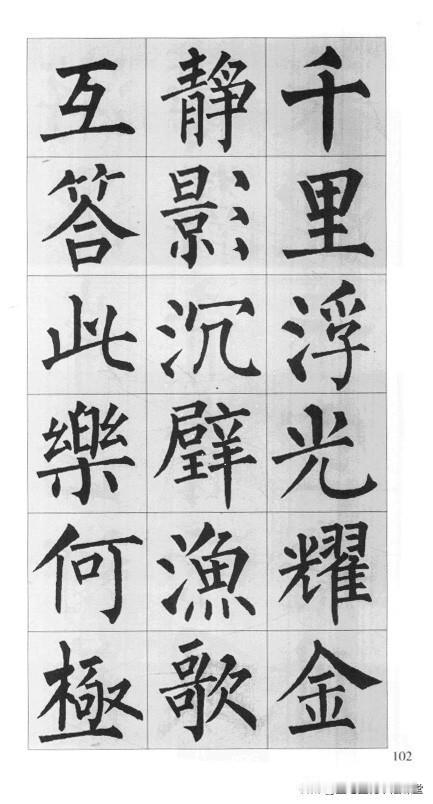 千里浮光耀金
靜影沉璧漁歌
互答此樂何極
102